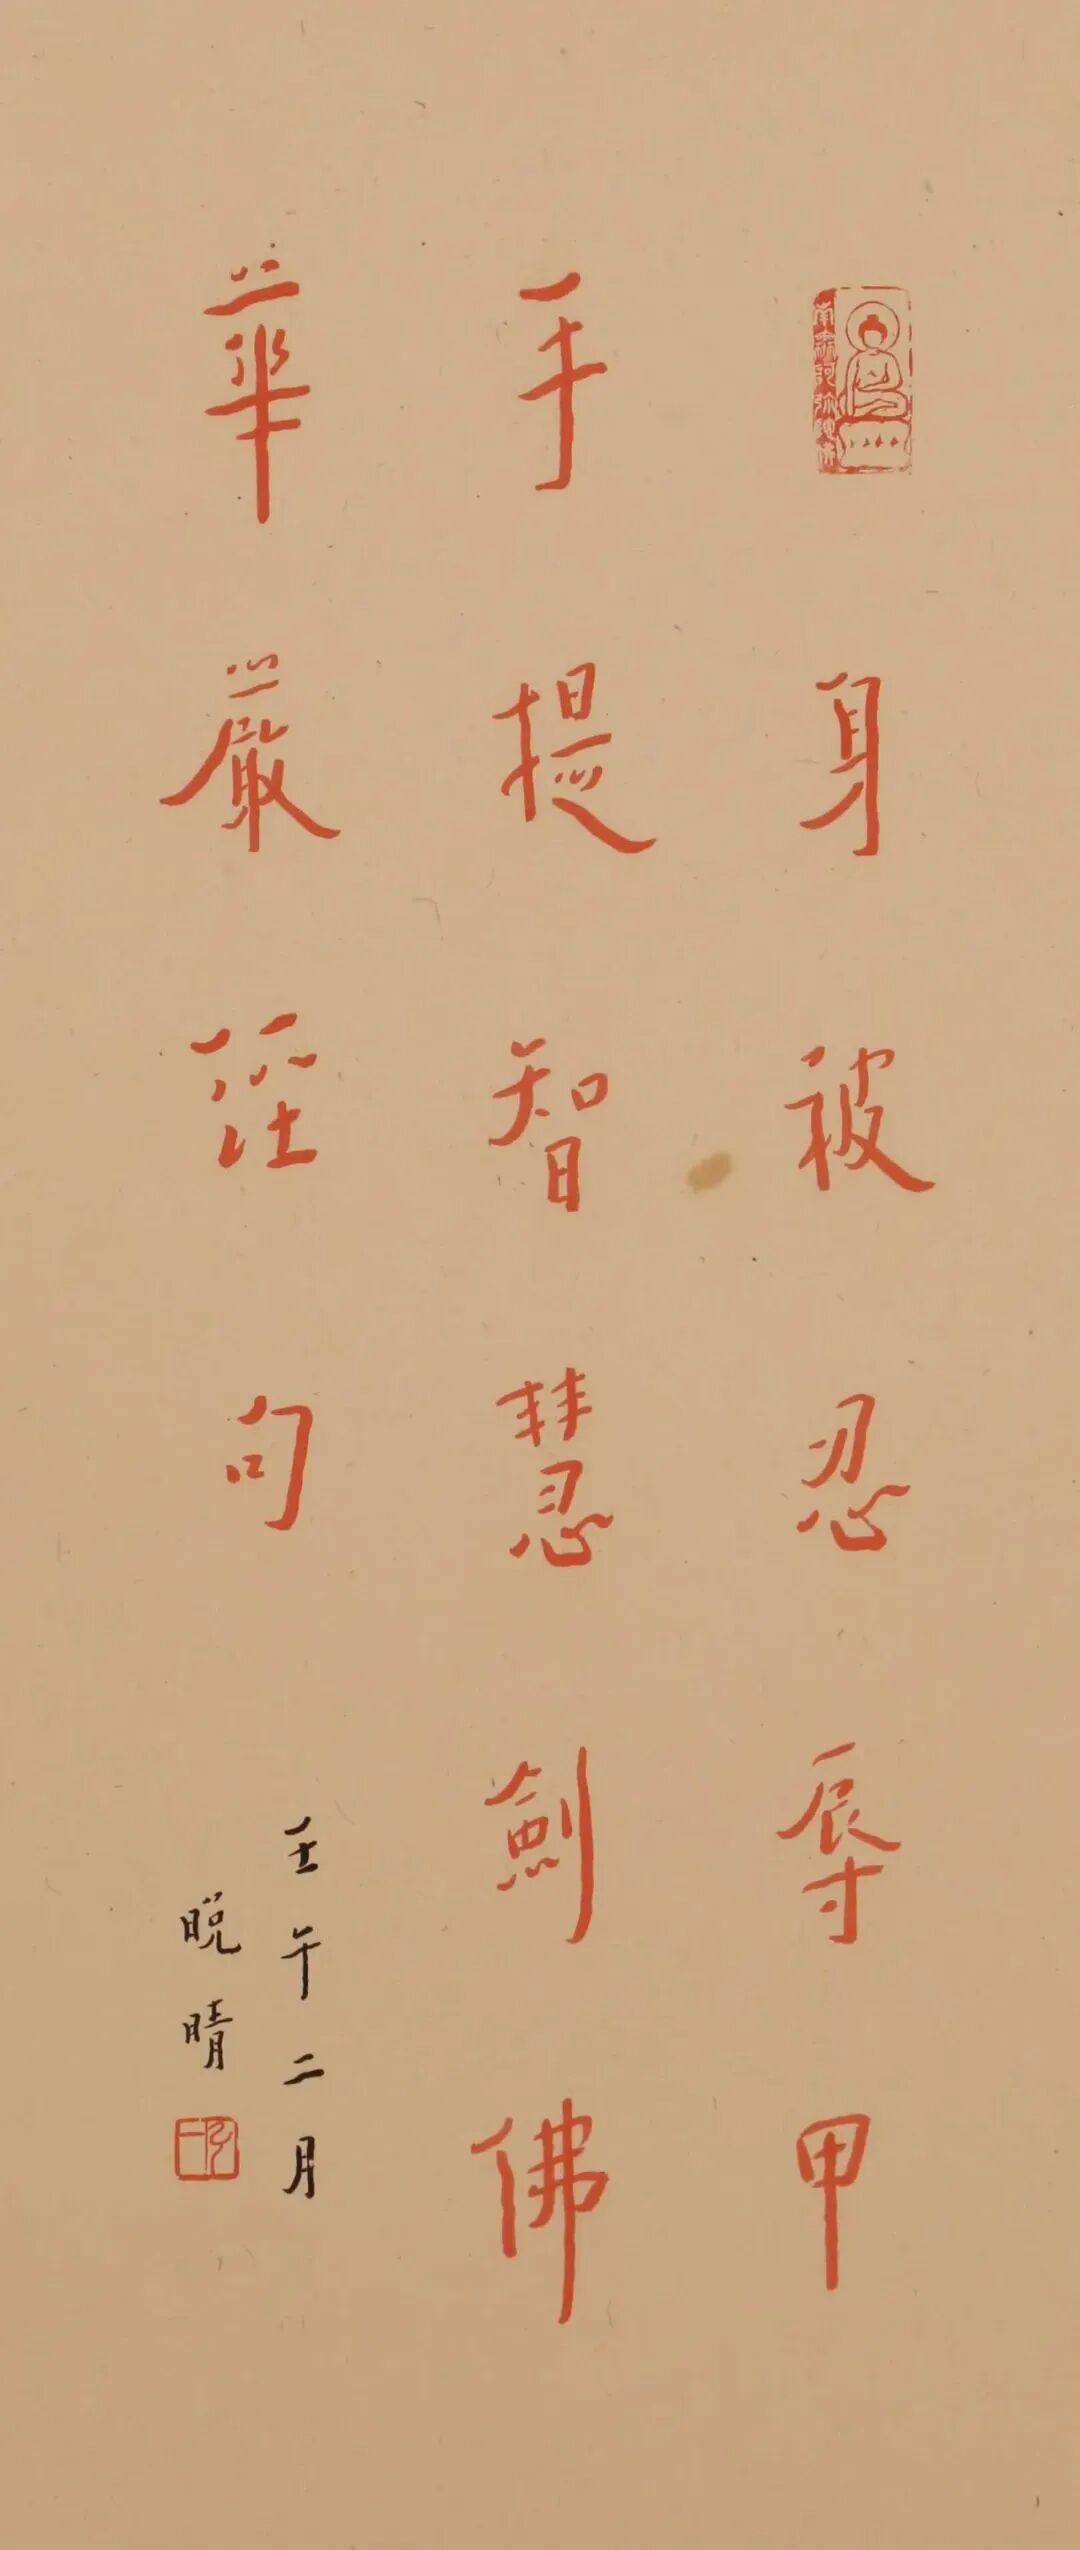 南無阿彌陀佛
身被忍辱甲
手提智慧劍佛
華嚴經句
壬午二月
晚晴